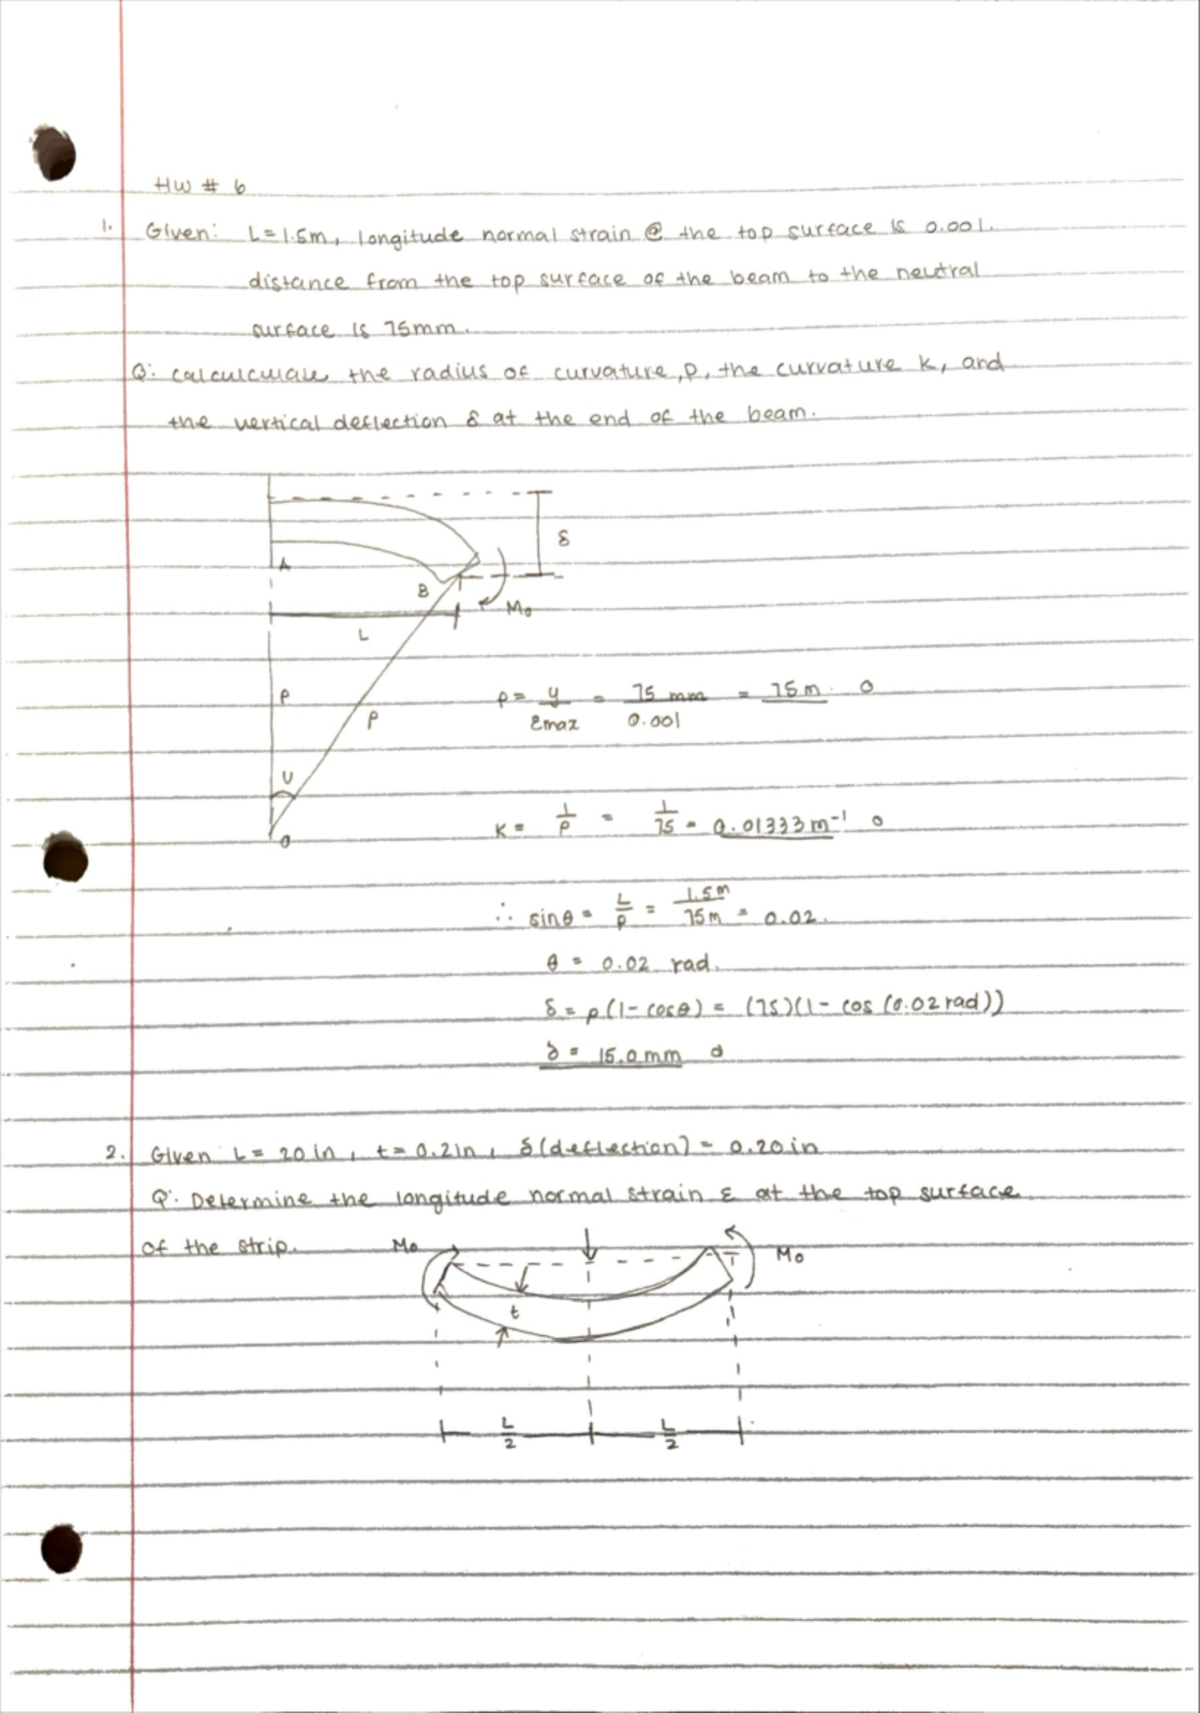 HW # 6
1. Given: L=1.5m, longitude normal strain @ the top surface is 0.001.
distance from the top surface of the beam to the neutral
surface is 75mm.
Q: calculculate the radius of curvature, ρ, the curvature k, and
the vertical deflection δ at the end of the beam.
δ
A
B
M₀
L
ρ
ρ
ρ = y/εmax = 75 mm/0.001 = 75m
O
K = 1/ρ = 1/75 = 0.01333 m⁻¹
∴ sinθ = L/ρ = 1.5m/75m = 0.02.
θ = 0.02 rad.
δ = ρ(1-cosθ) = (75)(1- cos (0.02 rad))
δ = 15.0 mm
2. Given: L= 20 in, t= 0.2in, δ(deflection) = 0.20 in
Q: Determine the longitude normal strain ε at the top surface
of the strip.
M₀
M₀
t
L/2
L/2